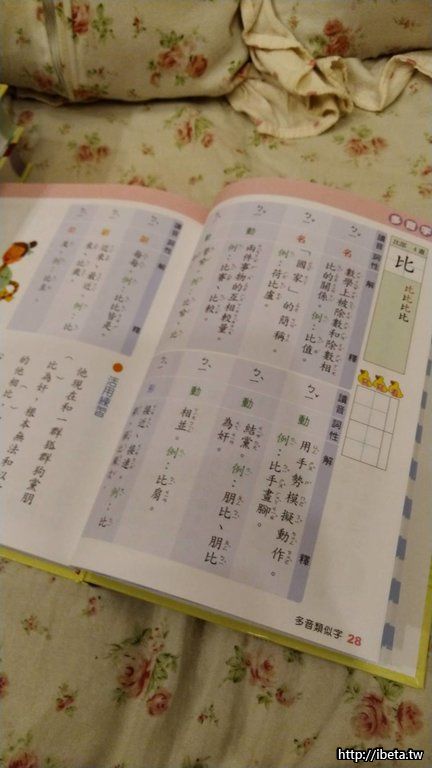 多音字
比部 4畫
比
比
比
比
比
讀音 詞性 解釋
ㄅㄧˇ 名 數學上被除數和除數相比的關係。例：比值。
名 「國家」的簡稱。例：荷比盧。
動 兩件事物的互相較量。例：比賽、比較。
讀音 詞性 解釋
ㄅㄧˇ 動 用手勢模擬動作。例：比手畫腳。
ㄅㄧˋ 動 結黨。例：朋比、朋比為奸。
ㄅㄧˋ 動 相並。例：比肩。
副 每每。例：比比皆是。
近來、最近。
活用練習
他現在和一群狐群狗黨朋
比為奸，根本無法和以
的他相比
多音類似字 28
http://ibeta.tw